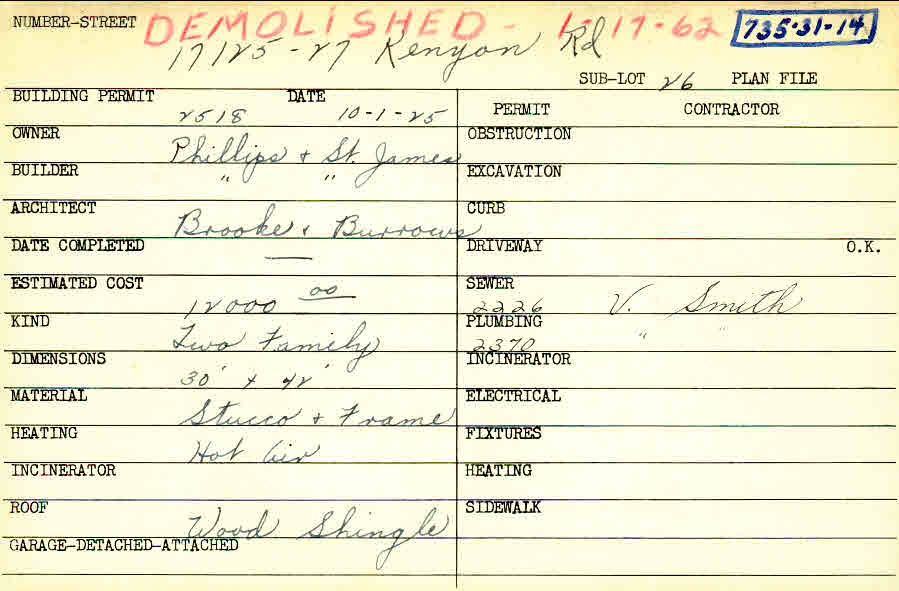 NUMBER-STREET DEMOLISHED - 1-17-62 735-31-14
17125-27 Kenyon Rd
SUB-LOT 26 PLAN FILE
BUILDING PERMIT DATE PERMIT CONTRACTOR
2518 10-1-25
OWNER Phillips + St. James OBSTRUCTION
BUILDER " " EXCAVATION
ARCHITECT Brooke + Burrows CURB
DATE COMPLETED — DRIVEWAY O.K.
ESTIMATED COST 12000 00 SEWER 2226 V. Smith
KIND Two Family PLUMBING 2370 " "
DIMENSIONS 30' x 42' INCINERATOR
MATERIAL Stucco + Frame ELECTRICAL
HEATING Hot Air FIXTURES
INCINERATOR HEATING
ROOF Wood Shingle SIDEWALK
GARAGE-DETACHED-ATTACHED